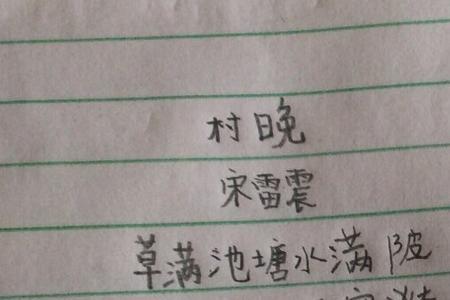 村晚
宋雷震
草满池塘水满陂